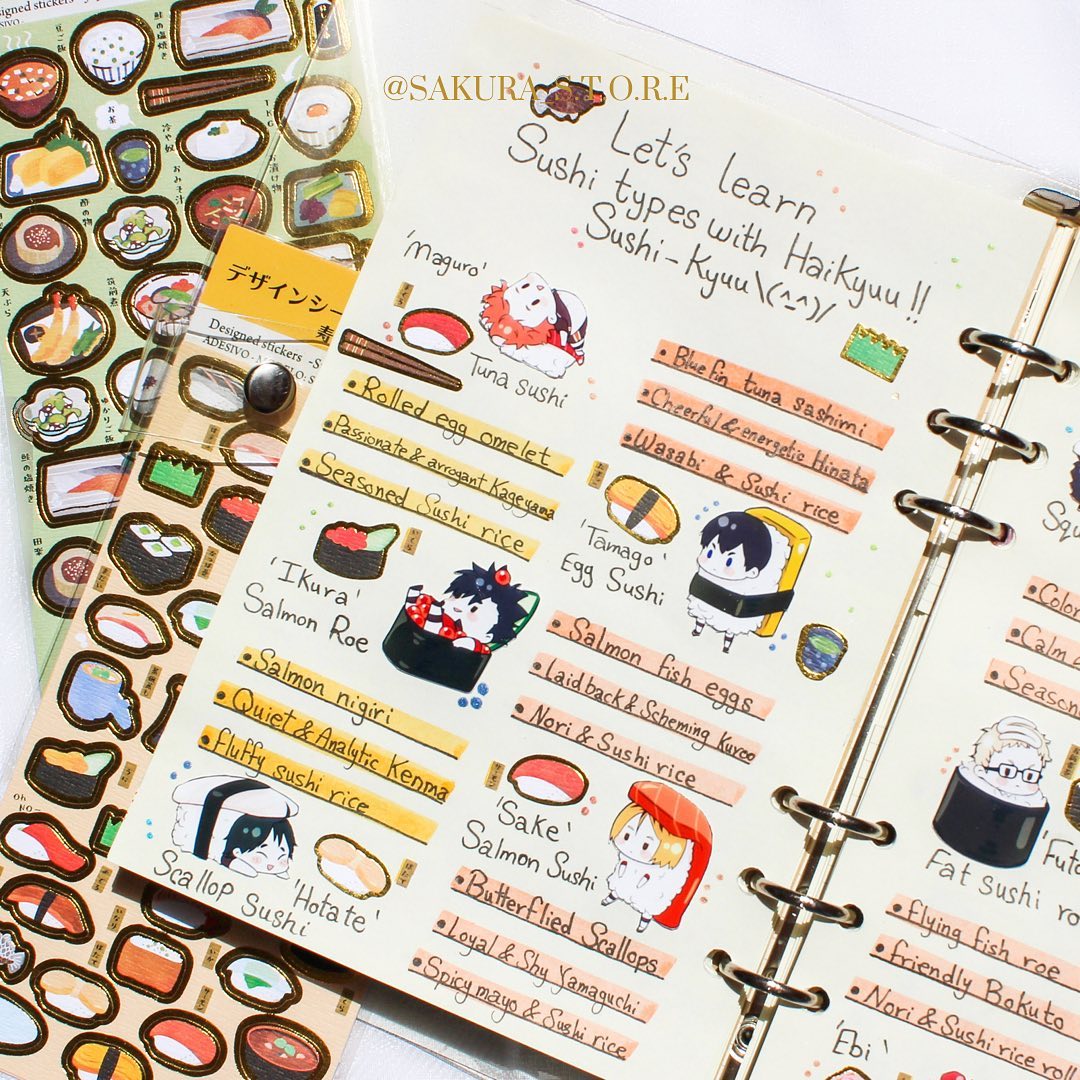 @SAKURA S.T.O.R.E
Let's learn
Sushi types with Haikyuu!!
Sushi-Kyuu\(^-^)/
'Maguro'
Tuna sushi
Bluefin tuna sashimi
Cheerful & energetic Hinata
Wasabi & Sushi rice
Rolled egg omelet
Passionate & arrogant Kageyama
Seasoned Sushi rice
'Tamago'
Egg Sushi
'Ikura'
Salmon Roe
Salmon fish eggs
Laidback & Scheming Kuroo
Nori & Sushi rice
Salmon nigiri
Quiet & Analytic Kenma
fluffy sushi rice
'Sake'
Salmon Sushi
Scallop Sushi
'Hotate'
Butterflied Scallops
Loyal & Shy Yamaguchi
Spicy mayo & Sushi rice
Squ
Color
Calm &
Season
'Futo
Fat sushi ro
flying fish roe
friendly Bokuto
Nori & Sushi rice roll
'Ebi
デザインシー
寿
Designed stickers -S
ADESIVO - MODELO: S
signed stickers
SIVO
豆ご飯
鮭の塩焼き
お茶
冷や奴
TKG
おみそ汁
お漬け物
酢の物
天ぷら
筑前煮
ゆかりご飯
鮭の塩焼き
田楽
まぐろ
たまご
いくら
サーモン
ほたて
Oh
NO~
いなり
ほたて